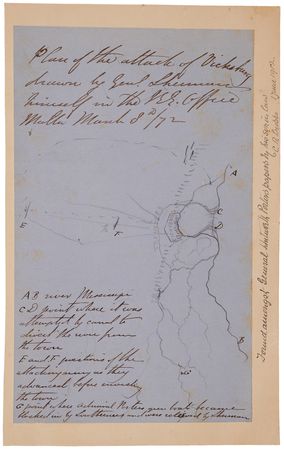 Plan of the attack of Vicksburg
drawn by Genl Sherman
himself in the Office
Malta March 8th/72
A
C
D
E
F
B
G
A B river Mississipi
C D point where it was
attempted by canal to
divert the river from
the town
E and F positions of the
attacking army as they
advanced before investing
the town
G point where Admiral Porters gun boats became
blocked in by Southerners and were relieved by Sherman
Found amongst General papers by his son in law
June 1902